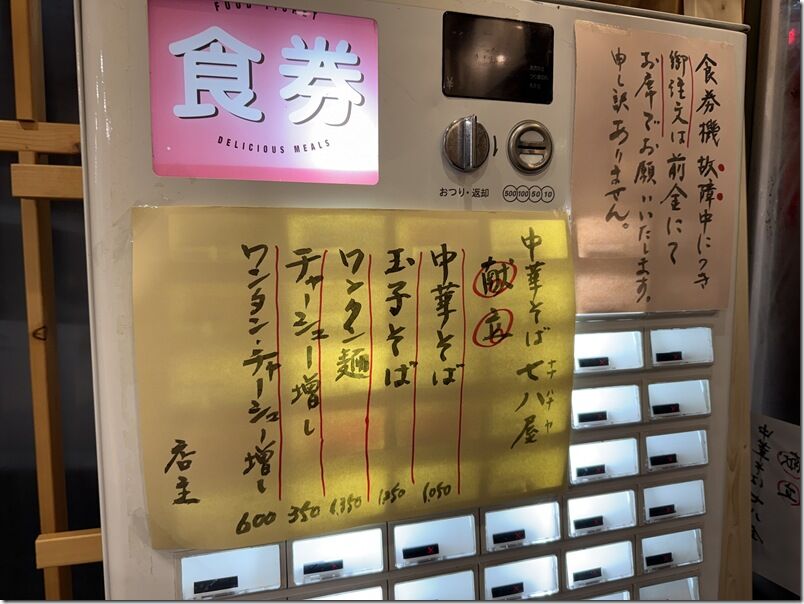 FOOD TICKET
食券
DELICIOUS MEALS
おつり・返却
500 100 50 10
食券機故障中につき
御注文は前金にて
お席でお願いいたします。
申し訳ありません。
中華そば 七八屋
ナナハチヤ
献立
中華そば 1,050
玉子そば 1,250
ワンタン麺 1,350
チャーシュー増し 350
ワンタン・チャーシュー増し 600
店主